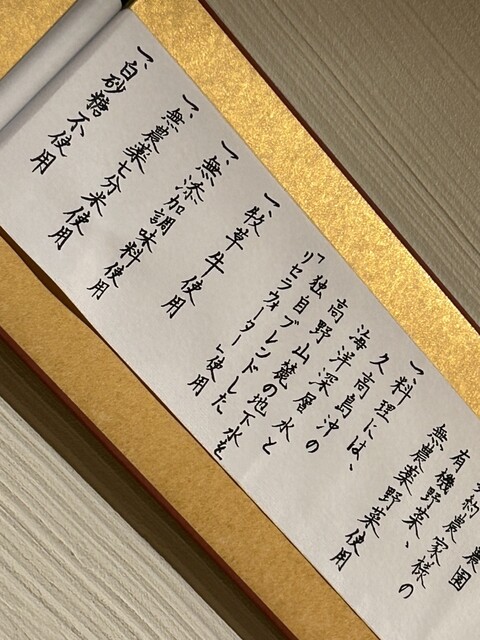 農園
約農家様の
有機野菜、
無農薬野菜使用
一、料理には、
久高島沖の
海洋深層水と
高野山麓の地下水を
「独自ブレンドした
リセラウォーター」使用
一、牧草牛使用
一、無添加調味料使用
一、無農薬七分米使用
一、白砂糖不使用